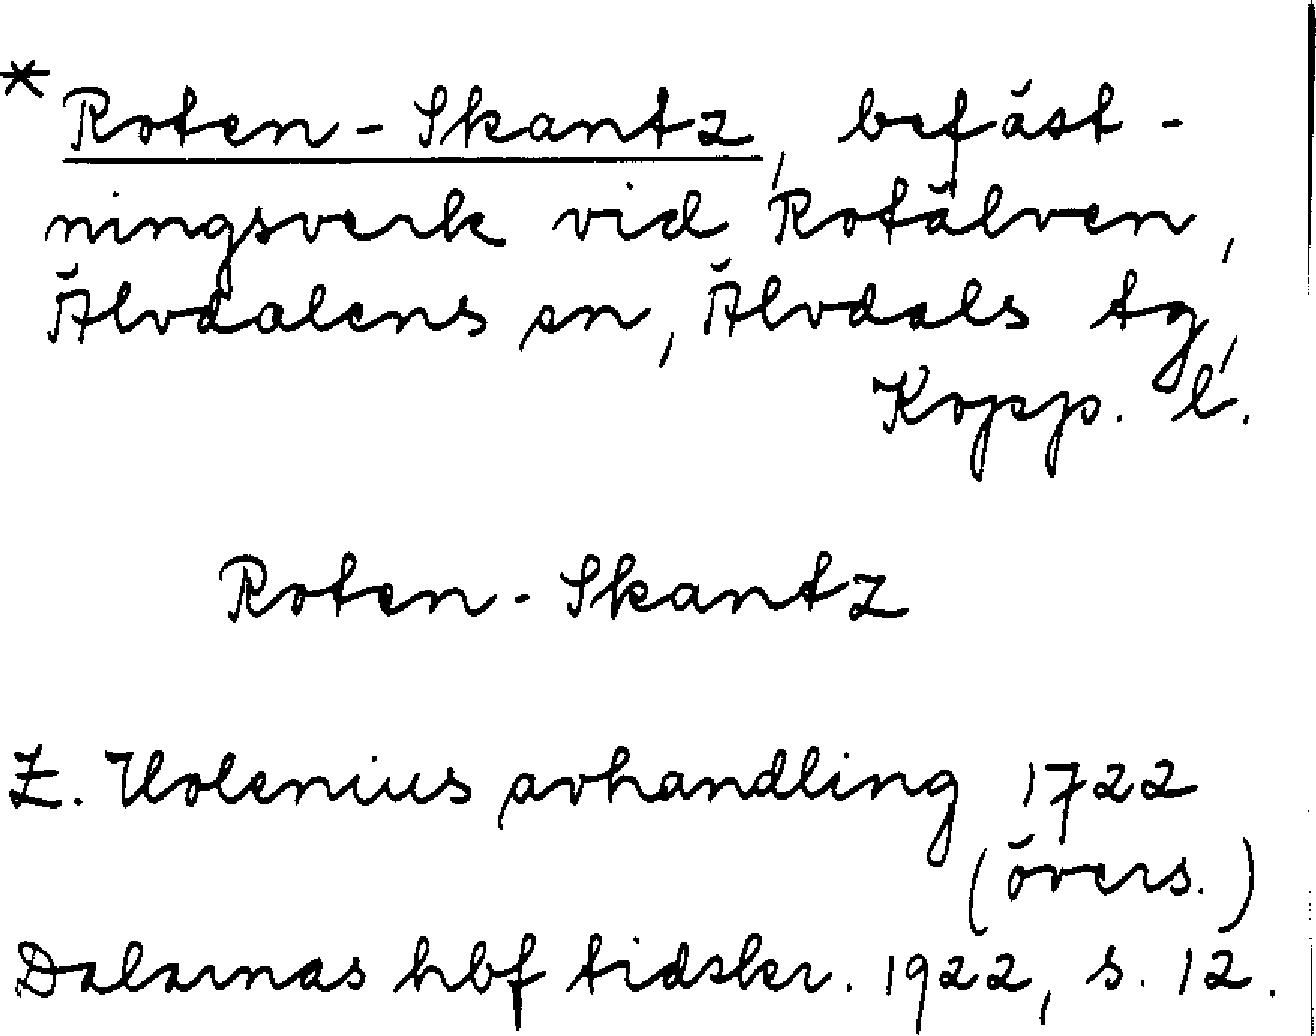 * Roten-Skantz, befäst-
ningsverk vid Rotälven,
Älvdalens sn, Älvdals tg,
Kopp. l.
Roten-Skantz
Z. Holenius avhandling 1722
(övers.)
Dalarnas hbf tidskr. 1922, s. 12.